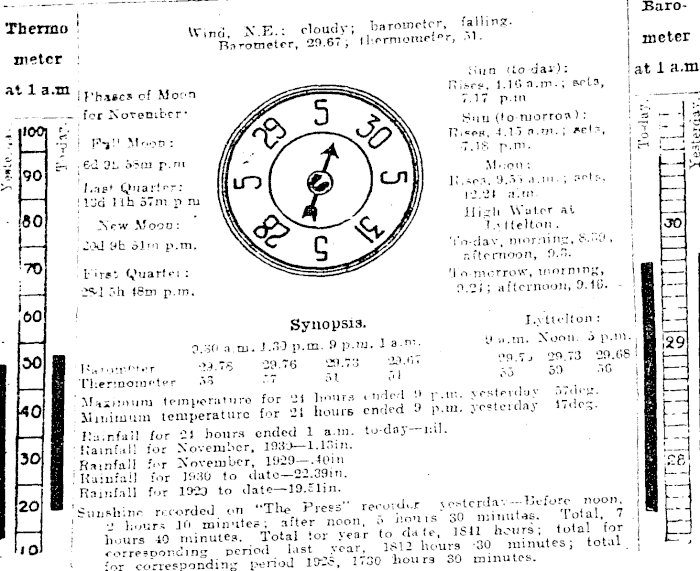 Wind, N.E.: cloudy; barometer, falling.
Barometer, 29.67; thermometer, 51.
Thermo
meter
at 1 a.m
To-day.
100
90
80
70
60
50
40
30
20
10
Phases of Moon
for November:
Full Moon:
6d 9h 58m p.m
Last Quarter:
13d 11h 57m p m
New Moon:
20d 9h 51m p.m.
First Quarter:
28d 5h 48m p.m.
5
30
5
31
5
28
5
29
Sun (to-day):
Rises, 4.16 a.m.; sets,
7.17 p.m
Sun (to-morrow):
Rises, 4.15 a.m.; sets,
7.18 p.m.
Moon:
Rises, 9.55 a.m.; sets,
12.24 a.m.
High Water at
Lyttelton.
To-day, morning, 8.39,
afternoon, 9.5.
To-morrow, morning,
9.24; afternoon, 9.46.
Baro-
meter
at 1 a.m
To-day.
Yesterday
30
29
28
Synopsis.
9.30 a.m. 1.30 p.m. 9 p.m. 1 a.m.
Barometer 29.78 29.76 29.73 29.67
Thermometer 53 57 51 51
Lyttelton:
9 a.m. Noon. 5 p.m.
29.75 29.73 29.68
55 59 56
Maximum temperature for 24 hours ended 9 p.m. yesterday 57deg.
Minimum temperature for 24 hours ended 9 p.m. yesterday 47deg.
Rainfall for 24 hours ended 1 a.m. to-day—nil.
Rainfall for November, 1930—1.13in.
Rainfall for November, 1929—.40in
Rainfall for 1930 to date—22.39in.
Rainfall for 1929 to date—19.51in.
Sunshine recorded on "The Press" recorder yesterday—Before noon,
2 hours 10 minutes; after noon, 5 hours 30 minutes. Total, 7
hours 40 minutes. Total for year to date, 1841 hours; total for
corresponding period last year, 1812 hours 30 minutes; total
for corresponding period 1928, 1730 hours 30 minutes.